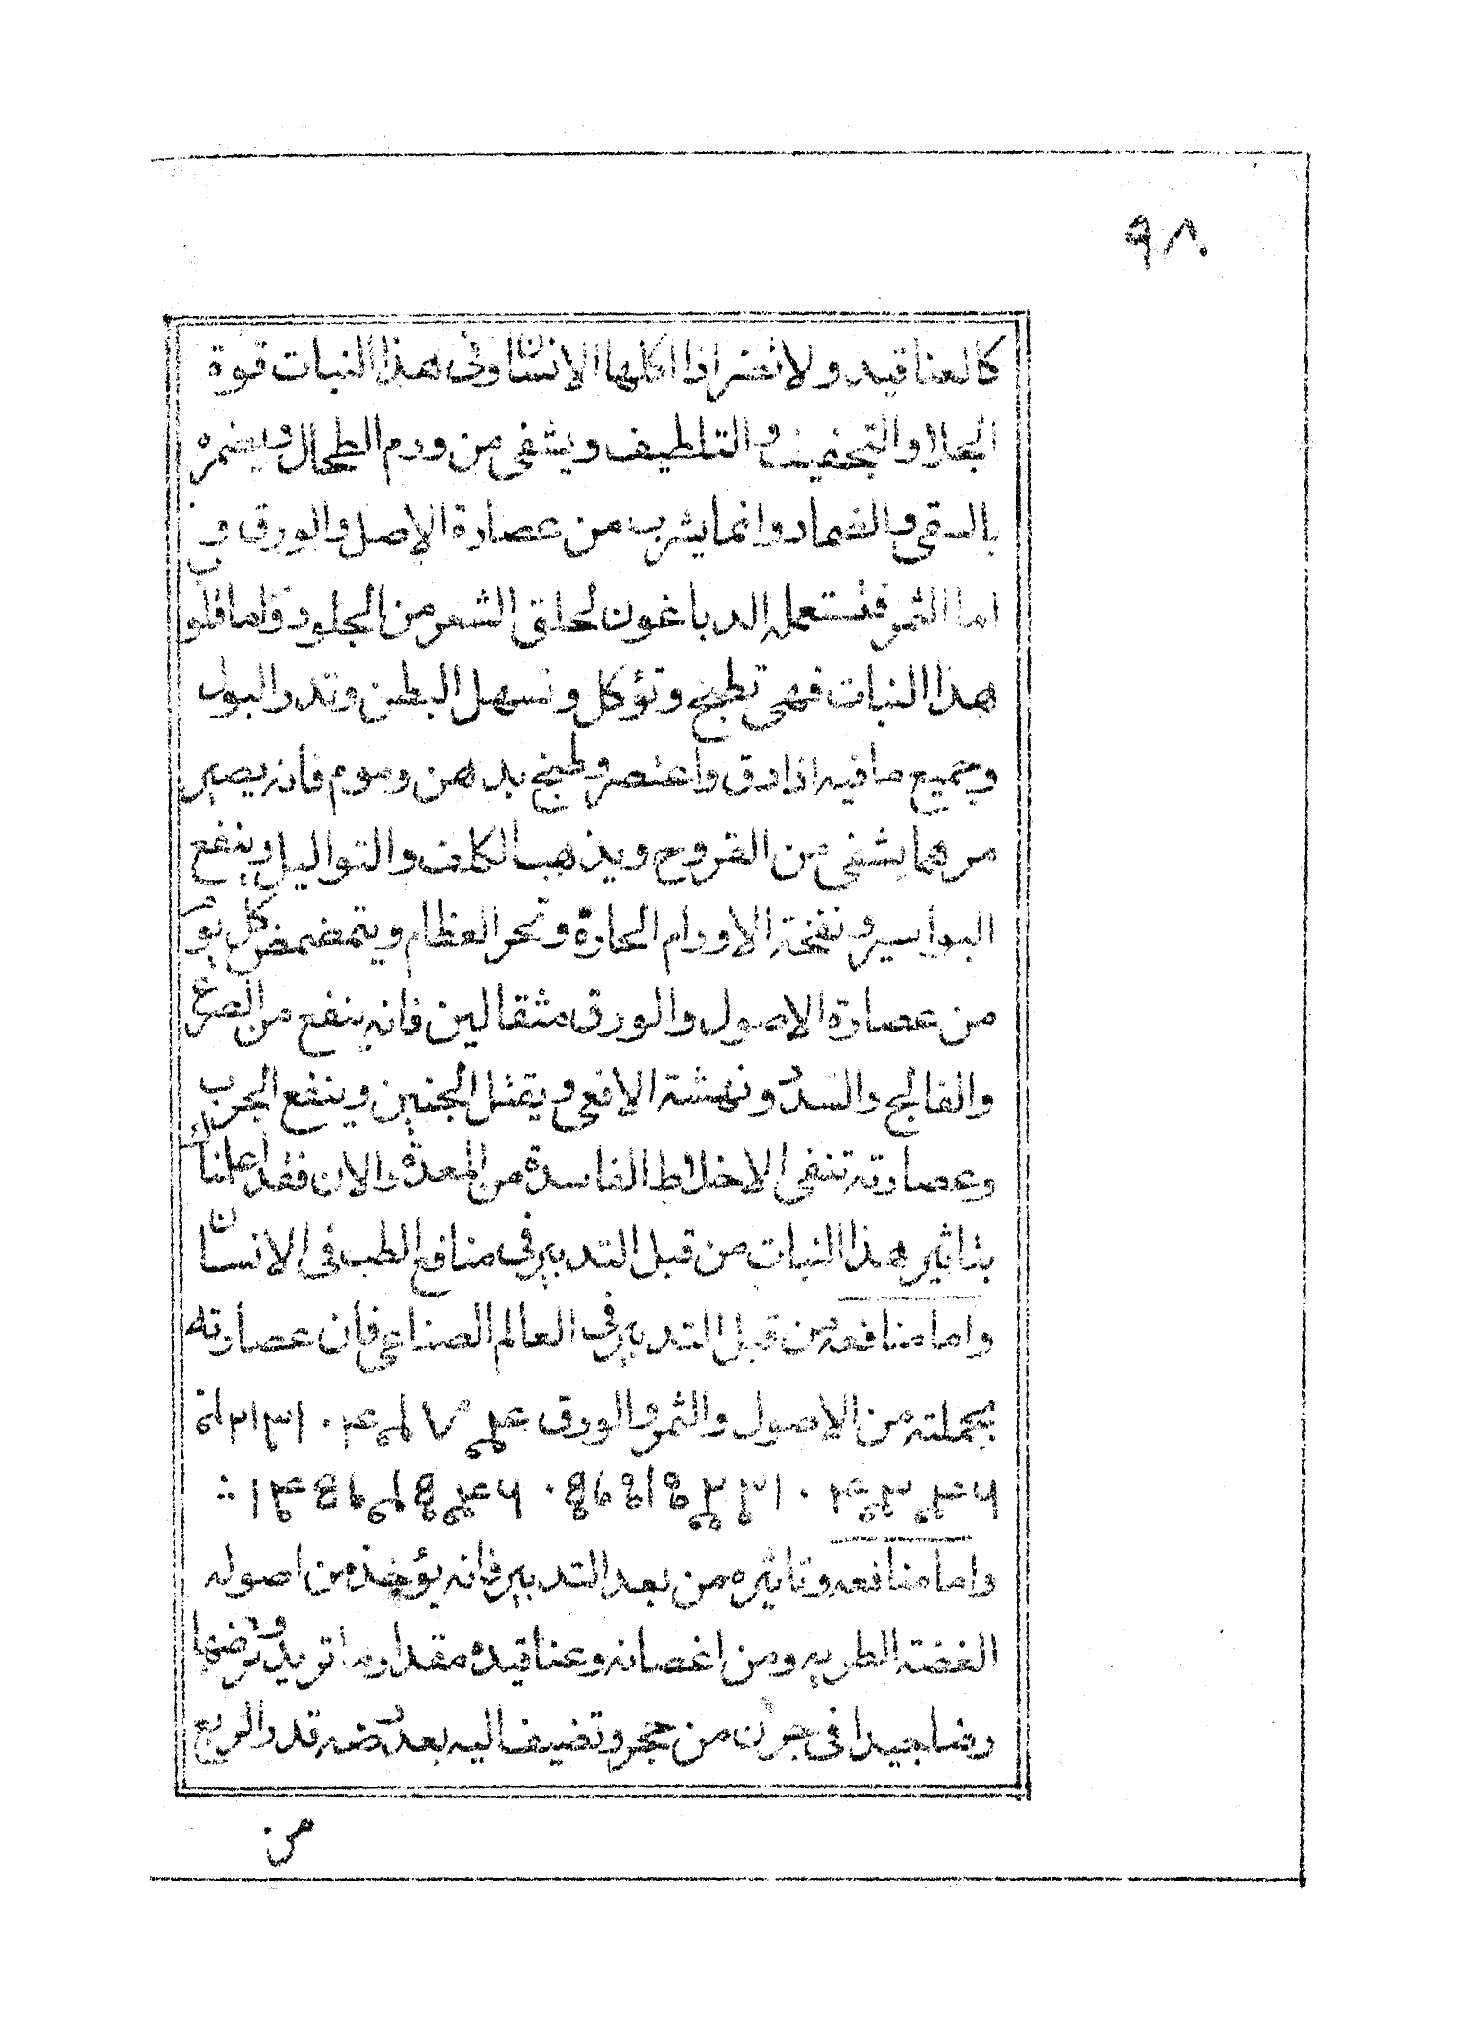 ٩٨٠
كالعناقيد ولا تضر اذا اكلها الانسان وفى هذا النبات قوة
الجلا والتجفيف والتلطيف ويشفى من ورم الطحال ويضمره
بالسقى والضماد وانما يشرب من عصارة الاصل والورق و
اما الثمر فيستعمله الدباغون لحلق الشعر من الجلود واما قلوب
هذا النبات فهى تطبخ وتؤكل وتسهل البطن وتدر البول
وجميع ما فيه اذا دق واعتصر وطبخ بدهن وموم فانه يصير
مرهما يشفى من القروح ويذهب الكلف والتواليل وينفع
البواسير ونفخة الاورام الحارة ونخر العظام ويتمضمض كل يوم
من عصارة الاصول والورق مثقالين فانه ينفع من الصرع
والفالج والسدد ونهشة الافعى ويقتل الجنين وينفع الجرب
وعصارته تنفى الاخلاط الفاسدة من المعدة والان فقد اعلمناك
بتاثير هذا النبات من قبل التدبير فى منافع الطب فى الانسان
واما منافعه من قبل التدبير فى العالم الصناعى فان عصارته
بجملته من الاصول والثمر والورق
واما منافعه وتاثيره من بعد التدبير فانه يؤخذ من اصوله
الغضة الطريه ومن اغصانه وعناقيده مقدار ما تريد وترضها
رضا جيدا فى جرن من حجر وتضيف اليه بعد رضه قدر الربع
من